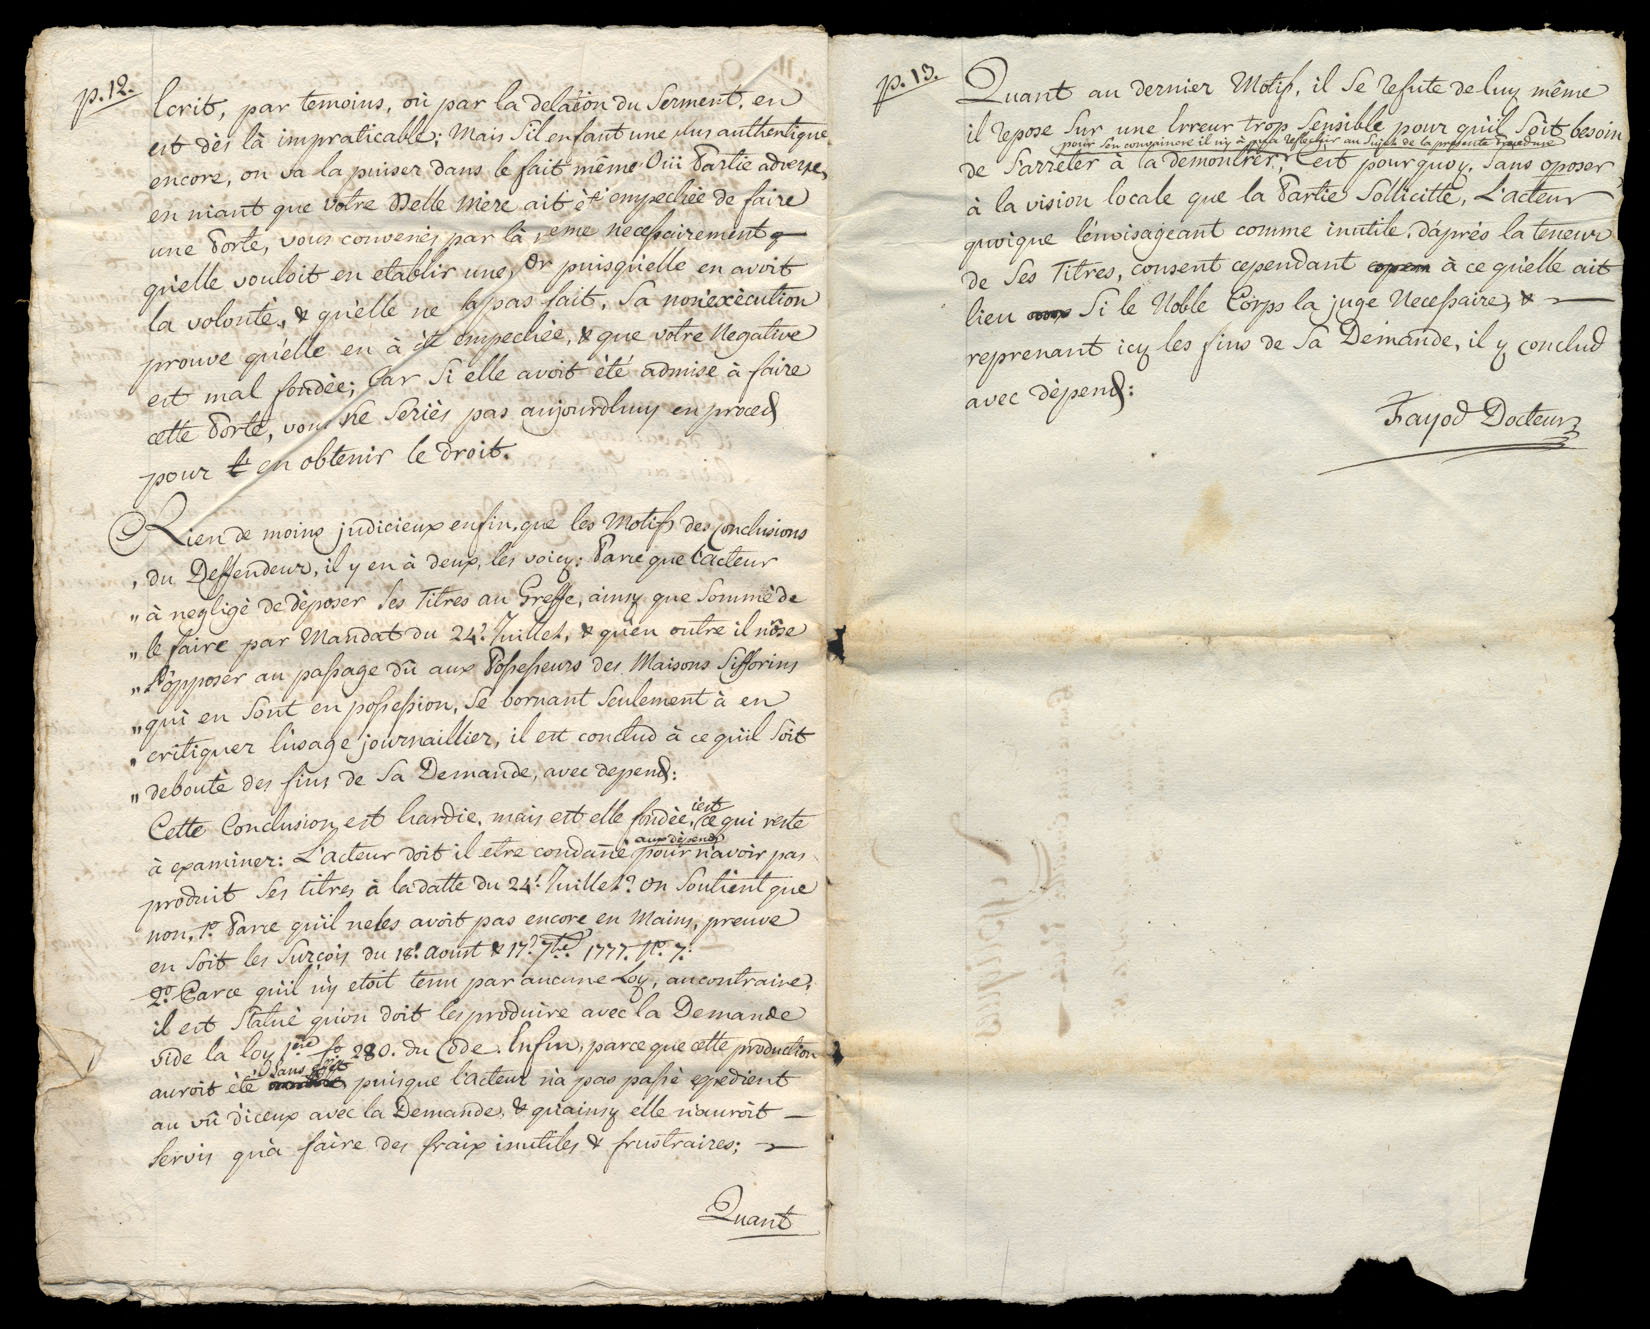 p. 12.
Ecrit, par temoins, où par la delaōn du Serment, en
est dès là impraticable; Mais S'il en faut une plus authentique
encore, on va la puiser dans le fait même Oui Partie adverse,
en niant que votre Delle Mère ait été empechée de faire
une Porte, vous convenés par là même necessairement
qu'elle vouloit en etablir une, Or puisqu'elle en avoit
la volonté, & qu'elle ne l'a pas fait, Sa non'exècution
prouve qu'elle en à été empechée, & que votre Negative
est mal fondée; Car Si elle avoit été admise à faire
cette Porte, vous ne Seriès pas aujourdhuy en proces
pour en obtenir le droit.
Rien de moins judicieux enfin, que les Motifs des Conclusions
" du Deffendeur, il y en à deux, les voicy: Parce que l'acteur
" à negligé de dèposer Ses Titres au Greffe, ainsy que Sommé de
" le faire par Mandat du 24e. Juillet, & qu'en outre il n'ôse
" S'opposer au passage dû aux Possesseurs des Maisons Sifforins
" qui en Sont en possession, Se bornant Seulement à en
" critiquer l'usage journaillier, il est conclud à ce qu'il Soit
" debouté des fins de Sa Demande, avec depends:
Cette Conclusion est hardie, mais est elle fondée, c'est ce qui reste
à examiner: L'acteur doit il etre condañé aux dèpends pour n'avoir pas
produit Ses titres à la datte du 24e. Juillet? On Soutient que
non, 1o. Parce qu'il ne les avoit pas encore en Mains, preuve
en Soit les Surçois du 18e. Aoust & 17e. 7bre. 1777. No. 7.
2o. Parce qu'il n'y etoit tenu par aucune Loy, au contraire,
il est Statué qu'on doit les produire avec la Demande
vide la loy 1ere fo 280. du Code. Enfin, parce que cette production
auroit été Sans fruit puisque l'acteur n'a pas passé expedient
au vû d'iceux avec la Demande, & qu'ainsy elle n'auroit
Servis qu'à faire des fraix inutiles & frustraires;
Quant
p. 13.
Quant au dernier Motif, il Se refute de luy même
il repose Sur une Erreur trop Sensible pour qu'il Soit besoin
pour S'en convaincre il n'y à qu'à reflechir au Sujet de la presente procedure
de S'arrêter à la demontrer, c'est pourquoy, Sans oposer
à la vision locale que la Partie Sollicitte, L'acteur
quoique l'envisageant comme inutile, d'après la teneur
de Ses Titres, consent cependant à ce qu'elle ait
lieu Si le Noble Corps la juge Necessaire, &
reprenant icy les fins de Sa Demande, il y conclud
avec dèpends:
Fayod Docteur